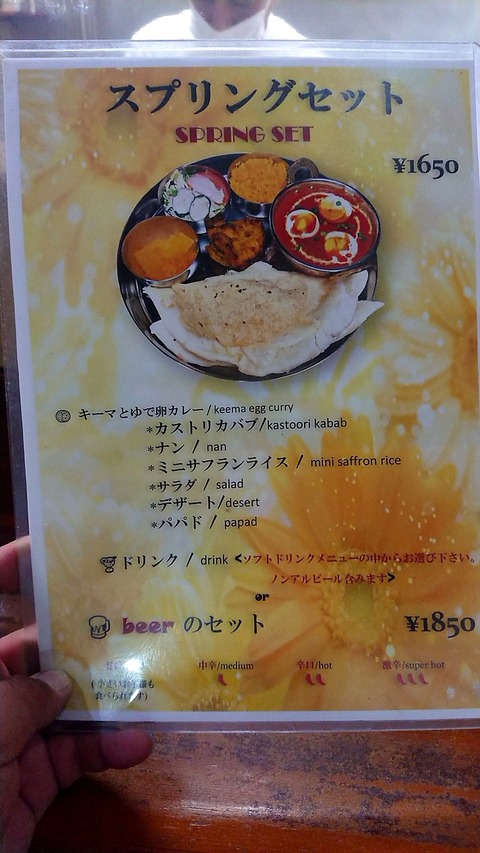 スプリングセット
SPRING SET
¥1650
キーマとゆで卵カレー / keema egg curry
*カストリカバブ/kastoori kabab
*ナン / nan
*ミニサフランライス / mini saffron rice
*サラダ / salad
*デザート/desert
*パパド / papad
ドリンク / drink <ソフトドリンクメニューの中からお選び下さい。
ノンアルビール含みます>
or
beer のセット ¥1850
中辛/medium 辛口/hot 激辛/super hot
(小さいお子様も
食べられます)